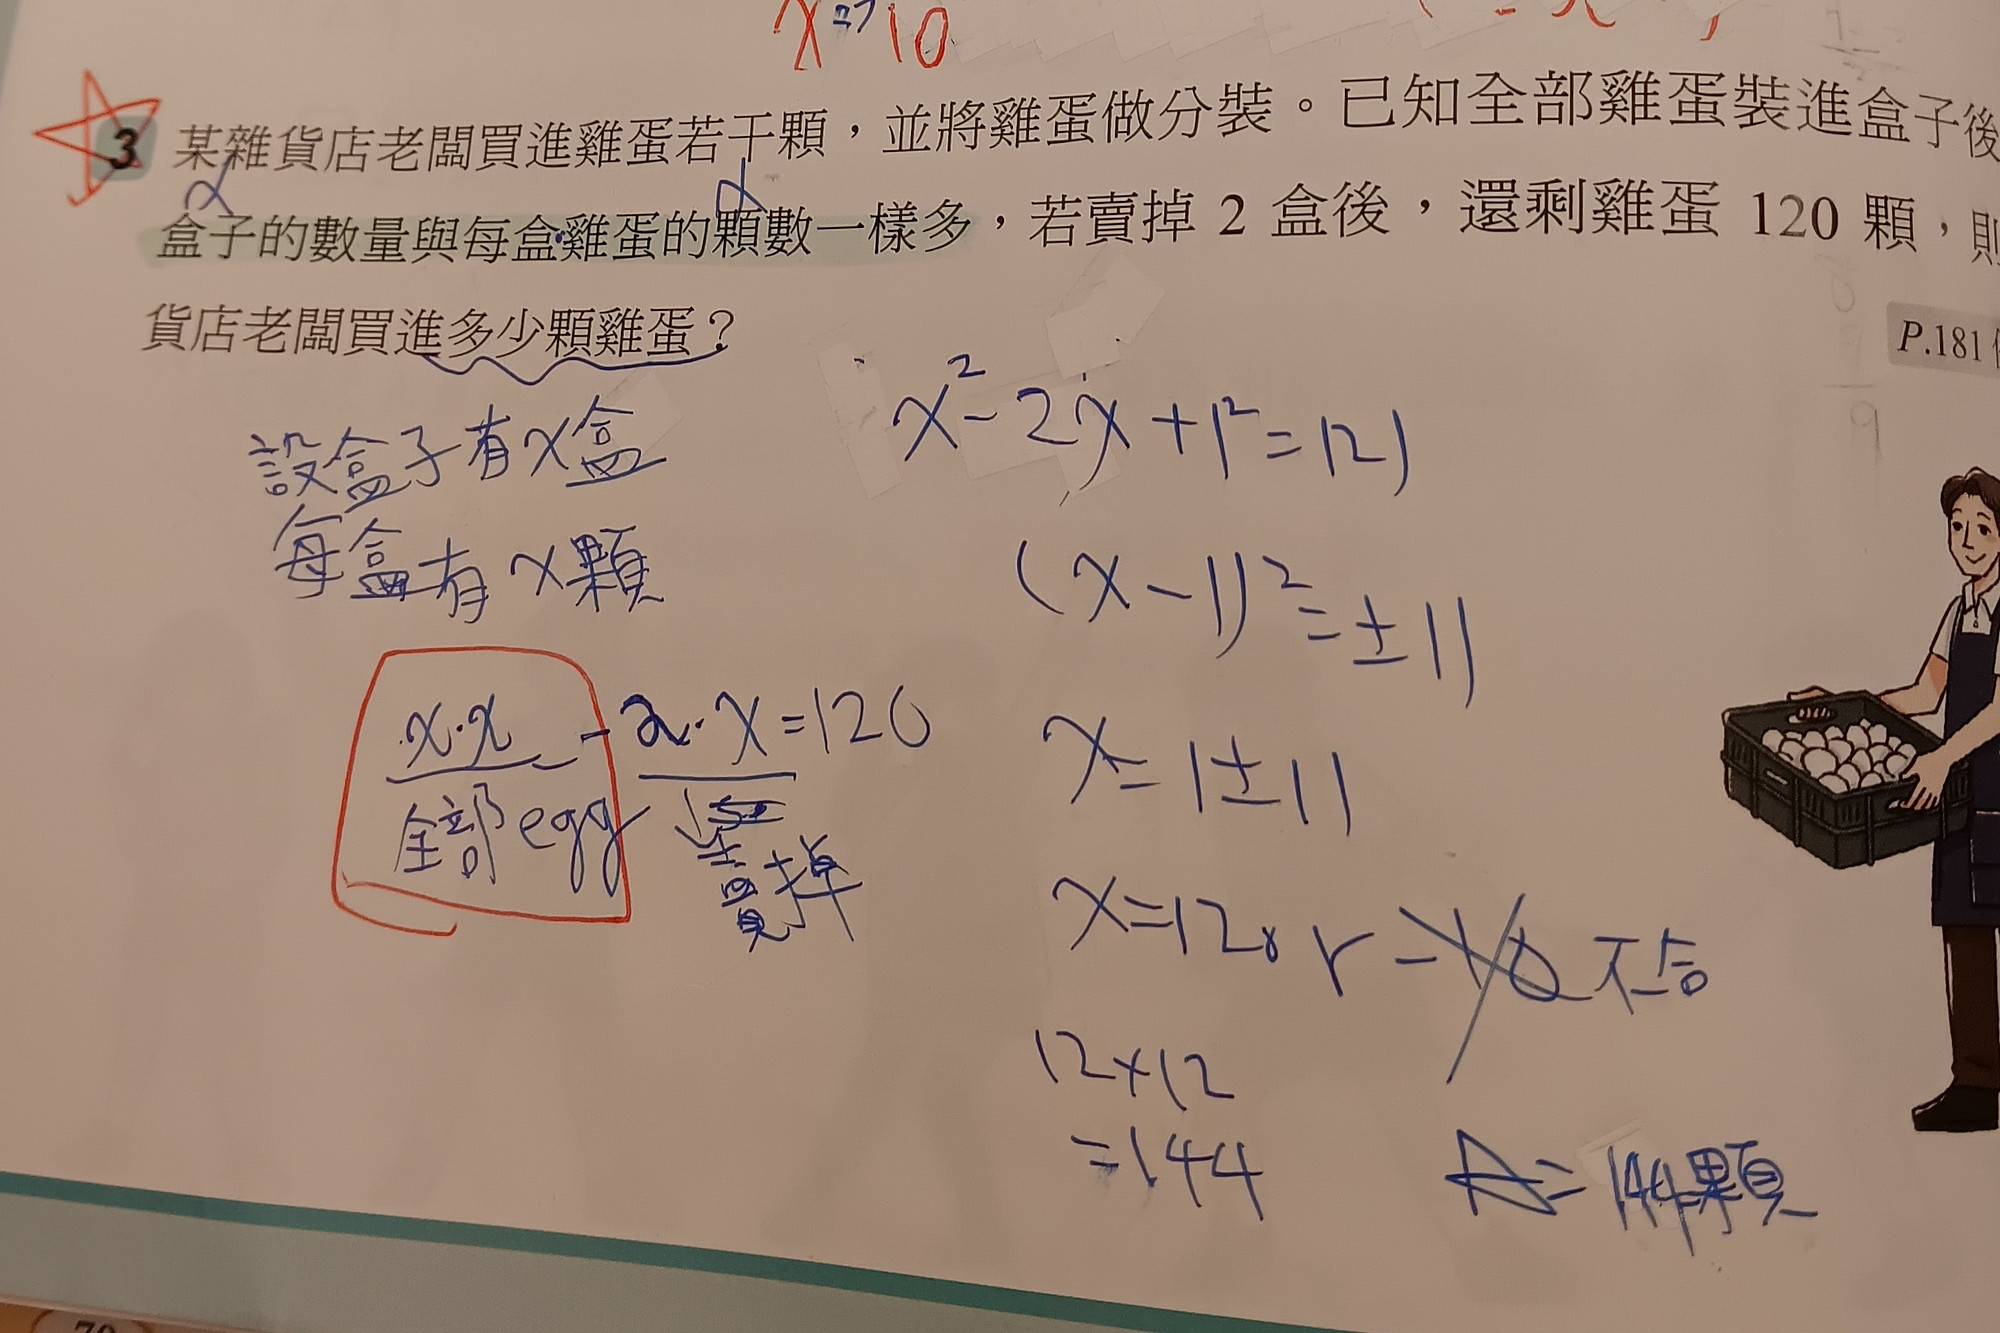 x=10
3 某雜貨店老闆買進雞蛋若干顆，並將雞蛋做分裝。已知全部雞蛋裝進盒子後
x x
盒子的數量與每盒雞蛋的顆數一樣多，若賣掉 2 盒後，還剩雞蛋 120 顆，則
貨店老闆買進多少顆雞蛋？
P.181
設盒子有x盒
每盒有x顆
x·x - 2·x=120
全部egg 賣掉
x²-2x+1²=121
(x-1)²=±11
x=1±11
x=12 or -10 不合
12×12
=144
A=144顆
70